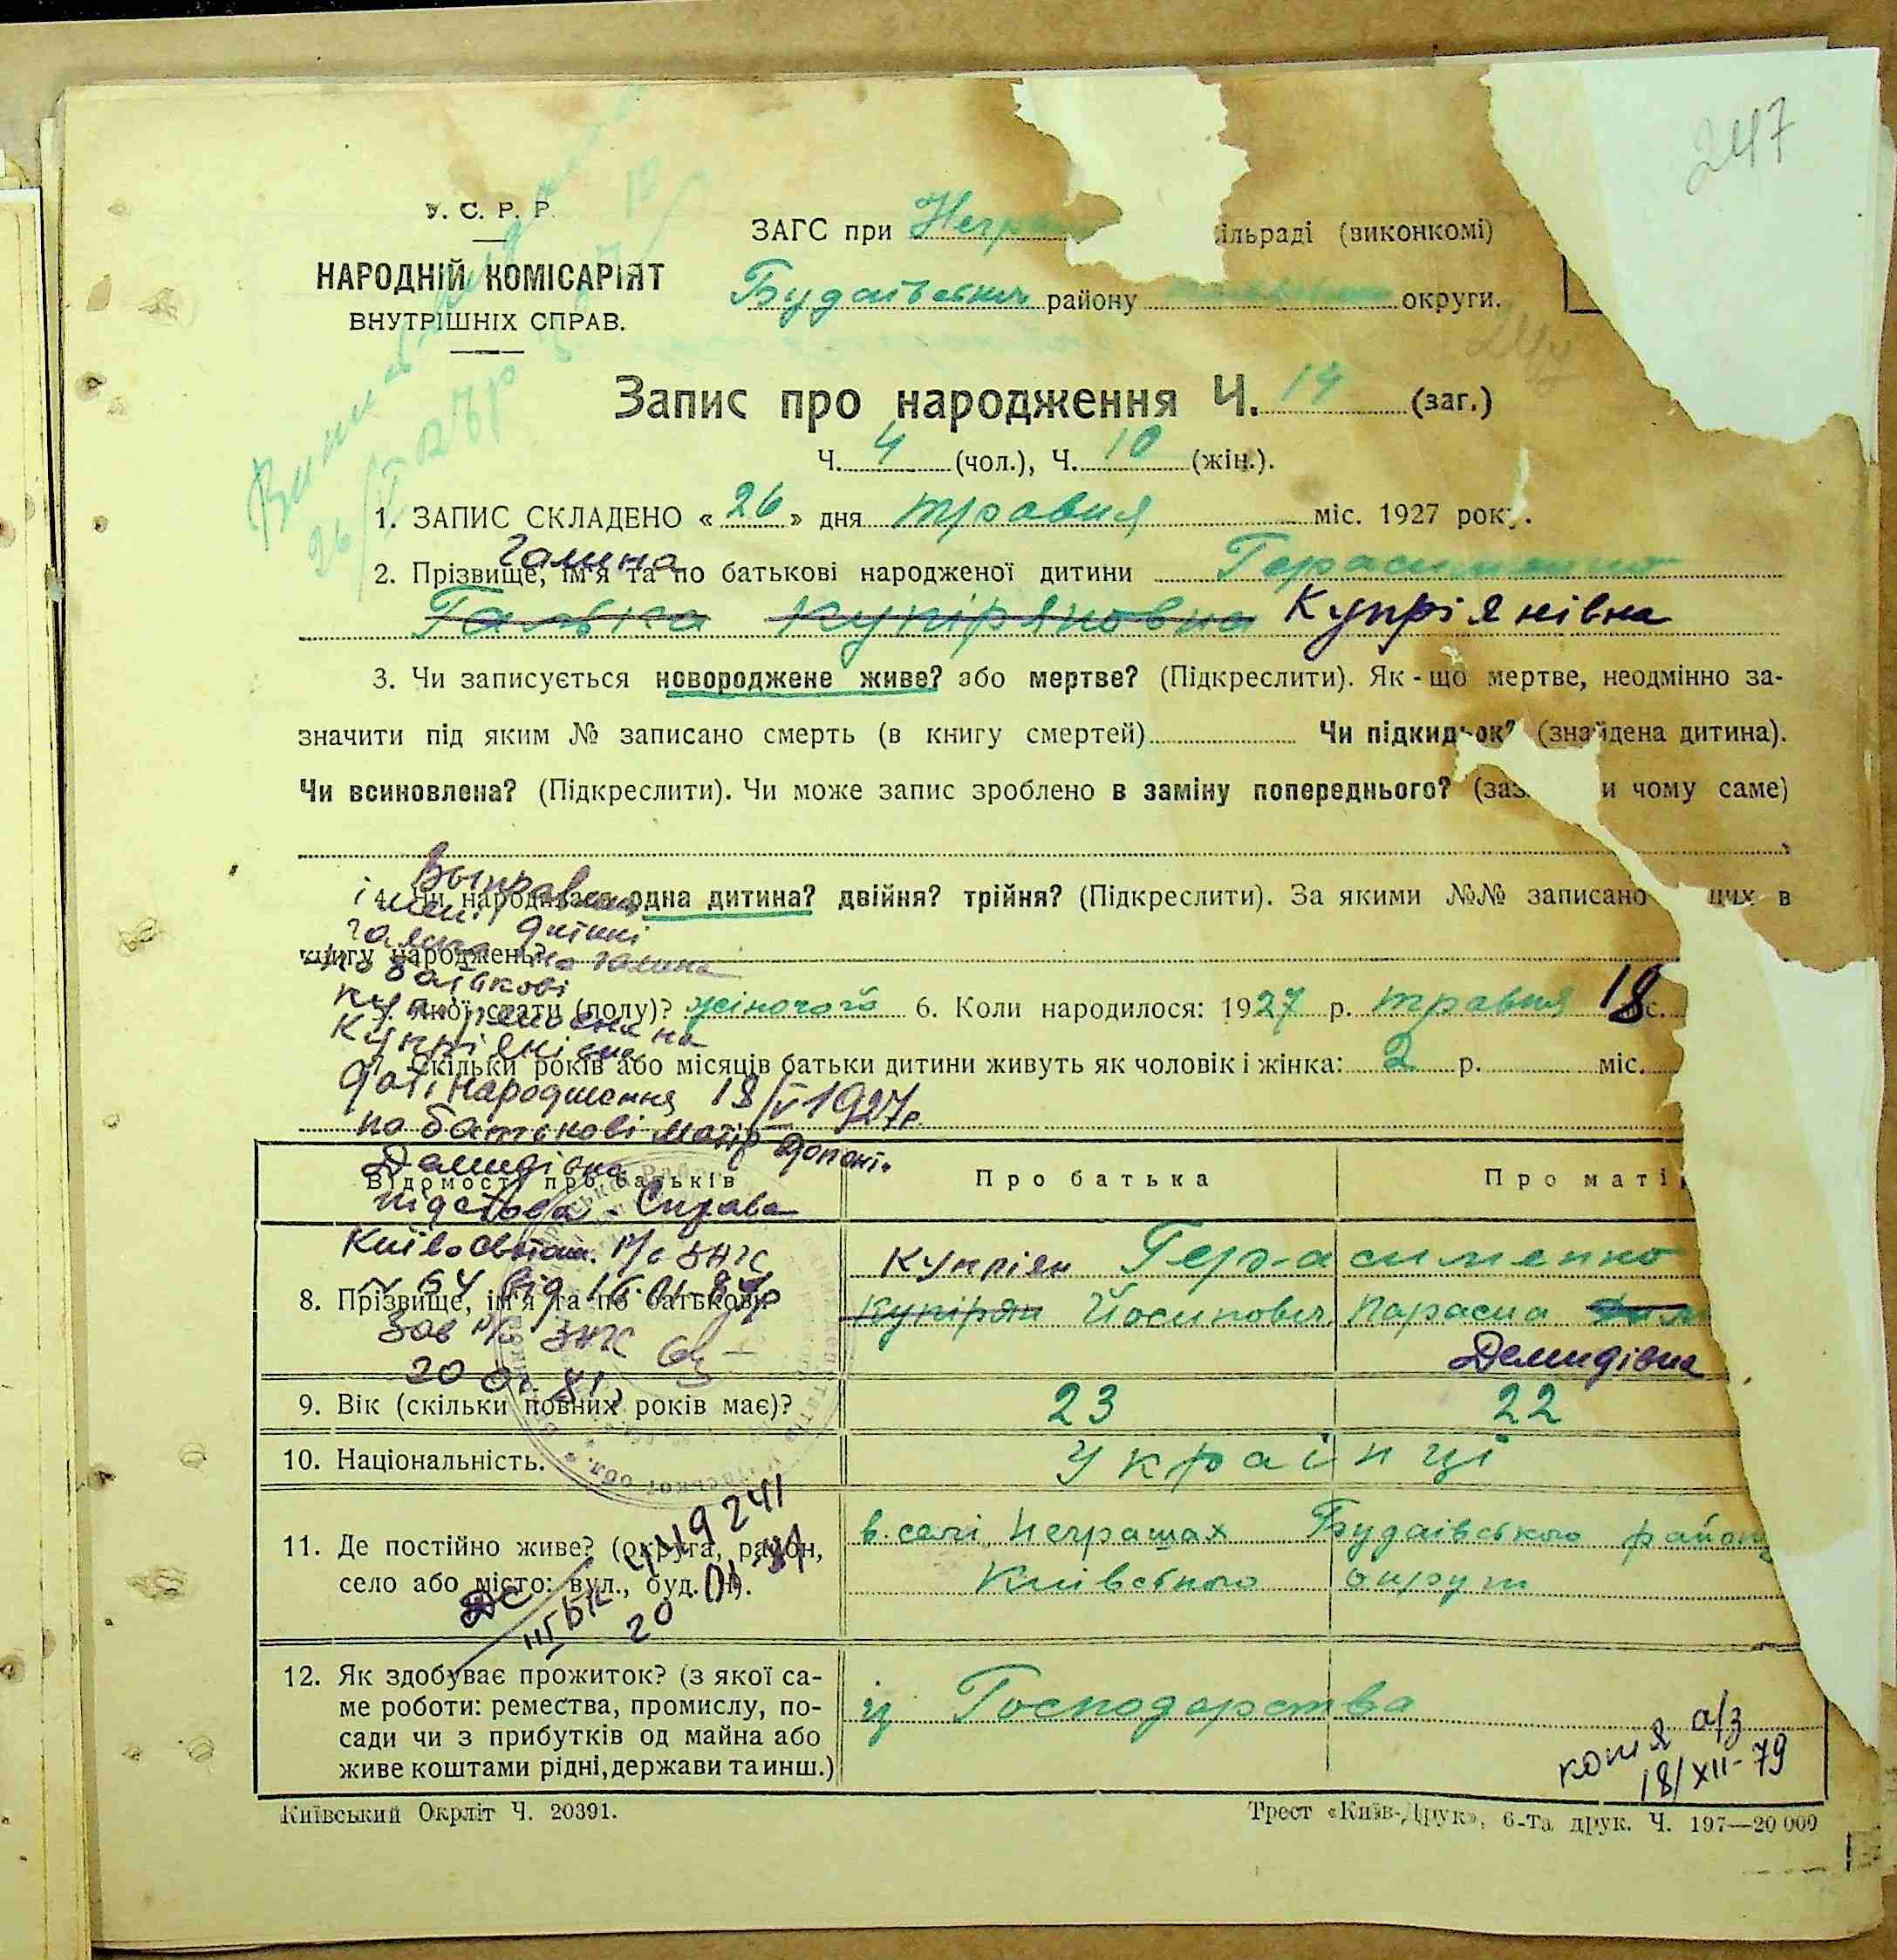 247
У. С. Р. Р.
НАРОДНІЙ КОМІСАРІЯТ
ВНУТРІШНІХ СПРАВ.
ЗАГС при Негра ільраді (виконкомі)
Будаївський району округи.
247
Запис про народження Ч. 14 (заг.)
Ч. 4 (чол.), Ч. 10 (жін.).
1. ЗАПИС СКЛАДЕНО « 26 » дня травня міс. 1927 року.
Галина
2. Прізвище, ім'я та по батькові народженої дитини Герасименко
Галька Купіряновна Купріянівна
3. Чи записується новороджене живе? або мертве? (Підкреслити). Як-що мертве, неодмінно за-
значити під яким № записано смерть (в книгу смертей) Чи підкидьок? (знайдена дитина).
Чи всиновлена? (Підкреслити). Чи може запис зроблено в заміну попереднього? (заз и чому саме)
Виправлено
імені дитині
одна дитина? двійня? трійня? (Підкреслити). За якими №№ записано цих в
на Галина
книгу народжень?
по батькові
якої стати (полу)? жіночого 6. Коли народилося: 1927 р. травня 18 с.
Купріянівна
Скільки років або місяців батьки дитини живуть як чоловік і жінка: 2 р. міс.
даті народження 18/V 1927р.
по батькові матір допові.
Демидівна
Відомості про батьків
Про батька
Проматір
підстава - Справа
Київосвятош. р/в ЗАГС
№ 64 від 16.01.81р
8. Прізвище, ім'я та по батькові
Купріян Герасименко
Купірян Йосипович Парасна
Демидівна
Зав р/в ЗАГС
20 01 81
9. Вік (скільки повних років має)?
23
22
10. Національність.
Українці
11. Де постійно живе? (округа, район,
село або місто: вул., буд. №).
в селі Неграшах Будаївського району
Київського округи
ЧМ 9241
III БК 20 01 81
12. Як здобуває прожиток? (з якої са-
ме роботи: ремества, промислу, по-
сади чи з прибутків од майна або
живе коштами рідні, держави та инш.)
із Господарства
копія а/з
18/XII-79
Київський Окрліт Ч. 20391.
Трест «Київ-Друк», 6-та друк. Ч. 197—20 000